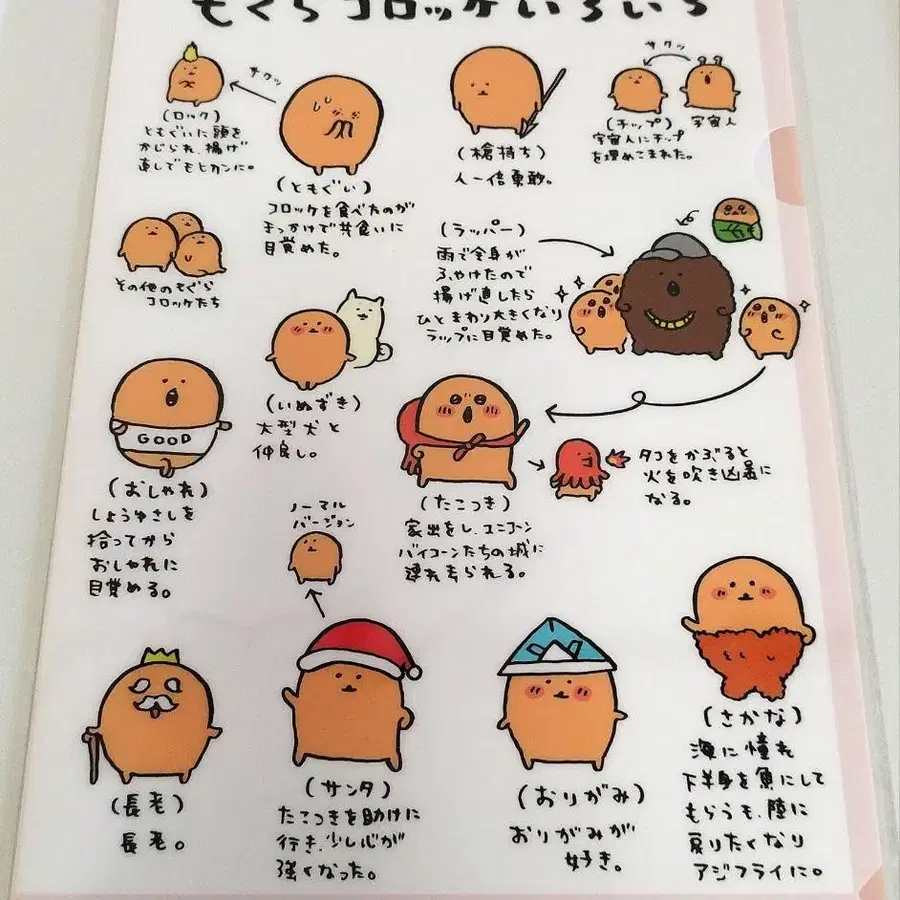 もぐらコロッケいろいろ
(ロック)
ともぐいに頭を
かじられ、揚げ
直しでモヒカンに。
サクッ
(ともぐい)
コロッケを食べたのが
きっかけで共食いに
目覚めた。
(槍持ち)
人一倍勇敢。
サクッ
(チップ)
宇宙人にチップ
を埋めこまれた。
宇宙人
その他のもぐら
コロッケたち
(いぬずき)
大型犬と
仲良し。
(ラッパー)
雨で全身が
ふやけたので
揚げ直したら
ひとまわり大きくなり
ラップに目覚めた。
GOOD
(おしゃれ)
しょうゆさしを
拾ってから
おしゃれに
目覚める。
(たこつき)
家出をし、ユニコーン
バイコーンたちの城に
連れ去られる。
タコをかぶると
火を吹き凶暴に
なる。
ノーマル
バージョン
(長老)
長老。
(サンタ)
たこつきを助けに
行き、少し心が
強くなった。
(おりがみ)
おりがみが
好き。
(さかな)
海に憧れ
下半身を魚にして
もらうも、陸に
戻りたくなり
アジフライに。